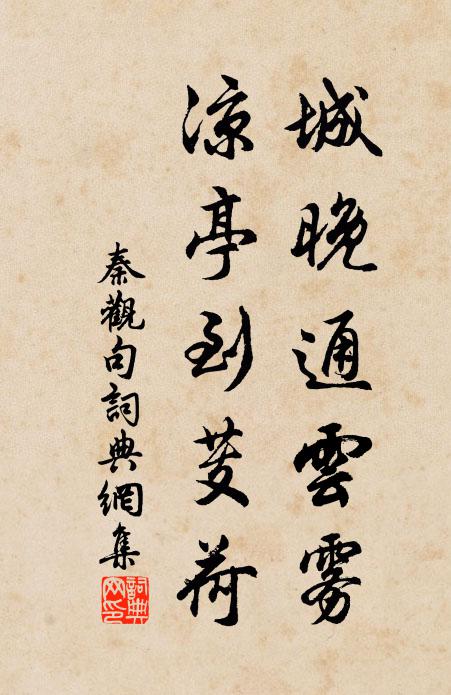 城晚通雲霧
涼亭到芰荷
秦觀句詞典網集
詞典網印